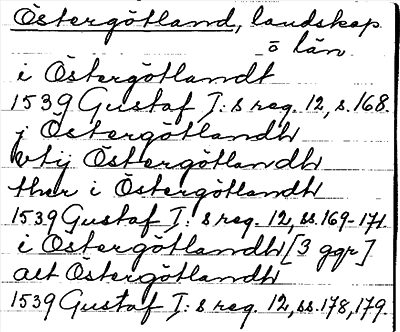 Östergötland, landskap
o län
i Östergötlandt
1539 Gustaf I:s reg. 12, s. 168.
j Östergötlandh
vtij Östergötlandh
ther i Östergötlandh
1539 Gustaf I:s reg. 12, ss. 169-171.
i Östergötlandh [3 ggr]
alt Östergötlandh
1539 Gustaf I:s reg. 12, ss. 178, 179.